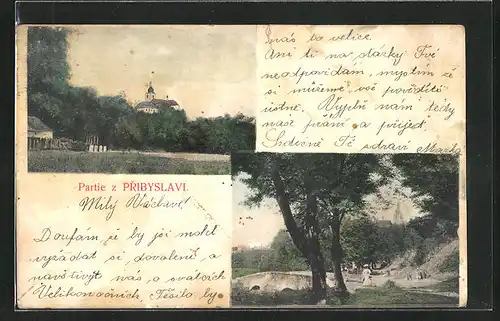 Partie z PŘIBYSLAVI.
Milý Václave!
Doufám, že by jsi mohl
vyžádat si dovolenou a
navštívit nás o svatcích
Velikonočních. Těšilo by
nás to velice.
Ani ti na otázky Tvé
neodpovídám, myslím že
si můžeme vše povědět
ústně. Vyplň nám tedy
naše přání a přijeď.
Srdečně Tě zdraví